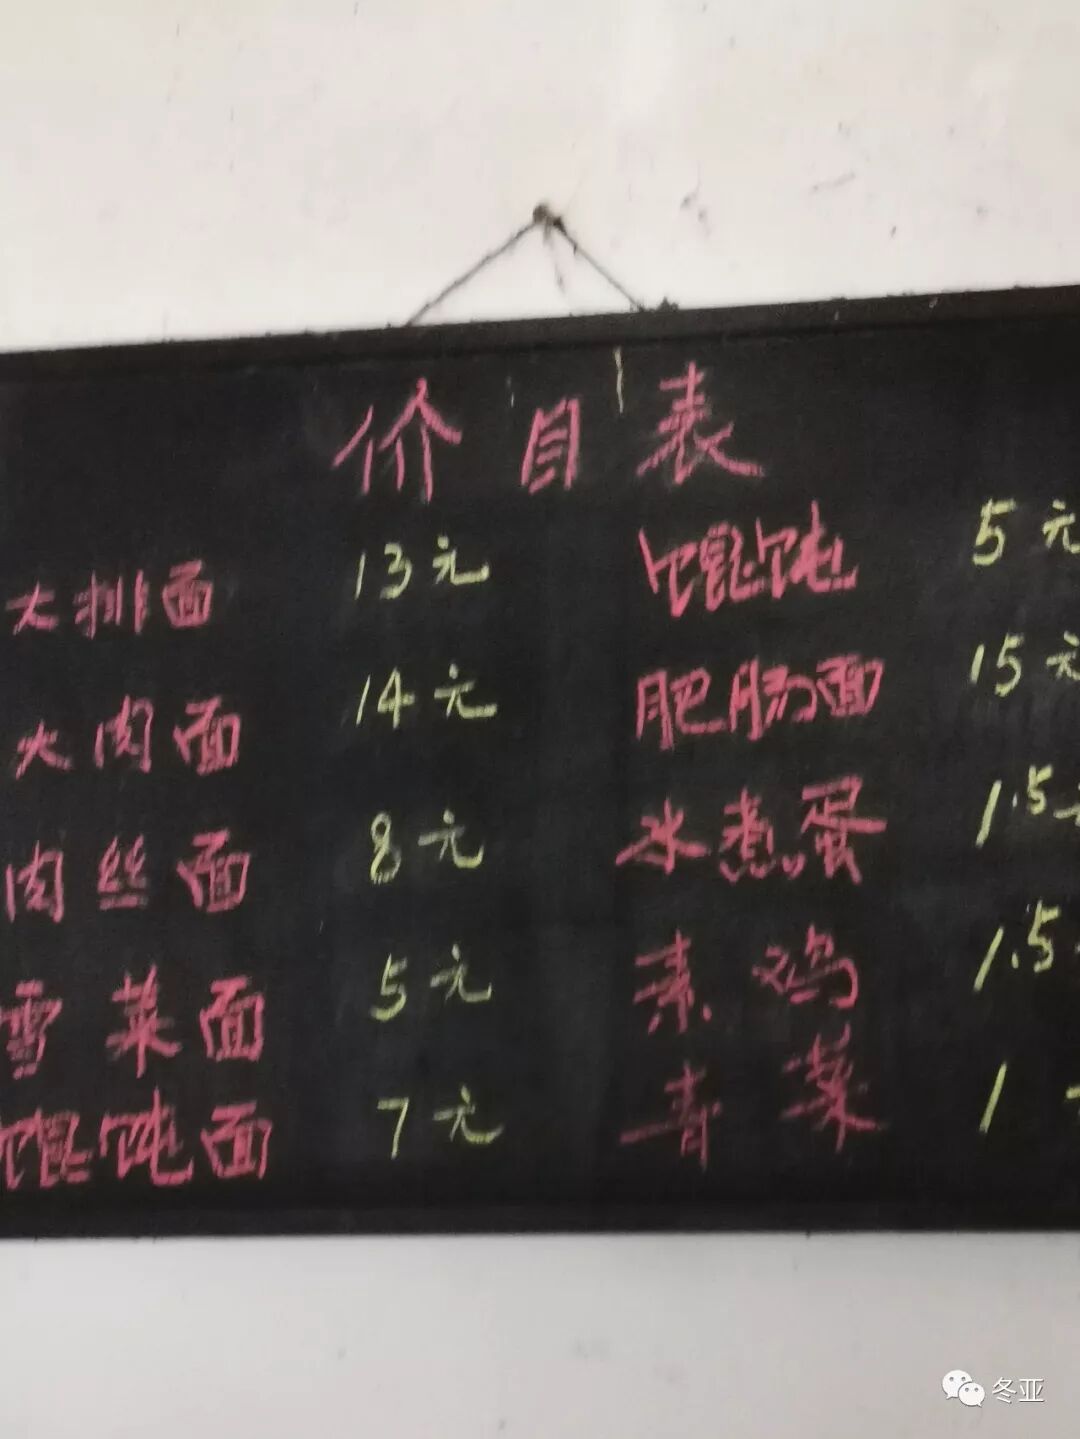 价目表
大排面 13元 馄饨 5元
大肉面 14元 肥肠面 15元
肉丝面 8元 水煮蛋 1.5元
雪菜面 5元 素鸡 1.5
馄饨面 7元 青菜 1
冬亚